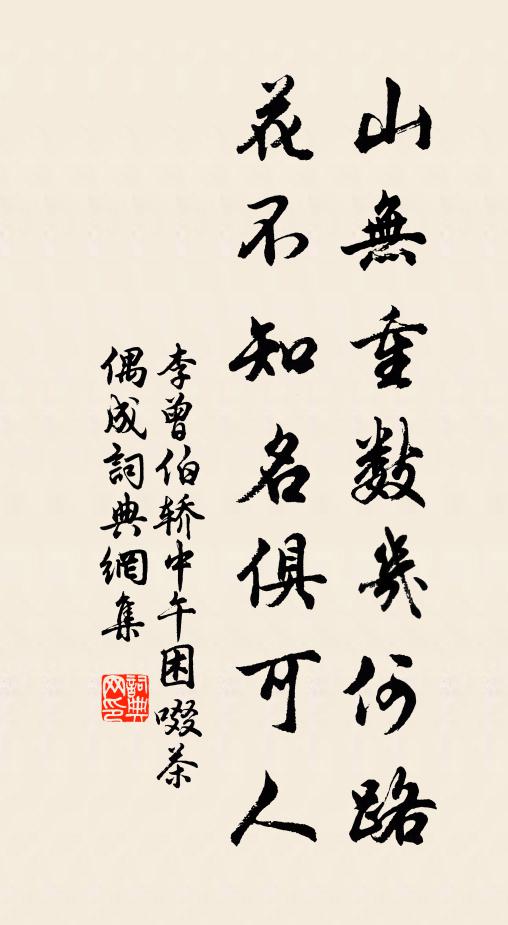 山無重數幾何路
花不知名俱可人
李曾伯轿中午困啜茶
偶成詞典網集
詞典网印